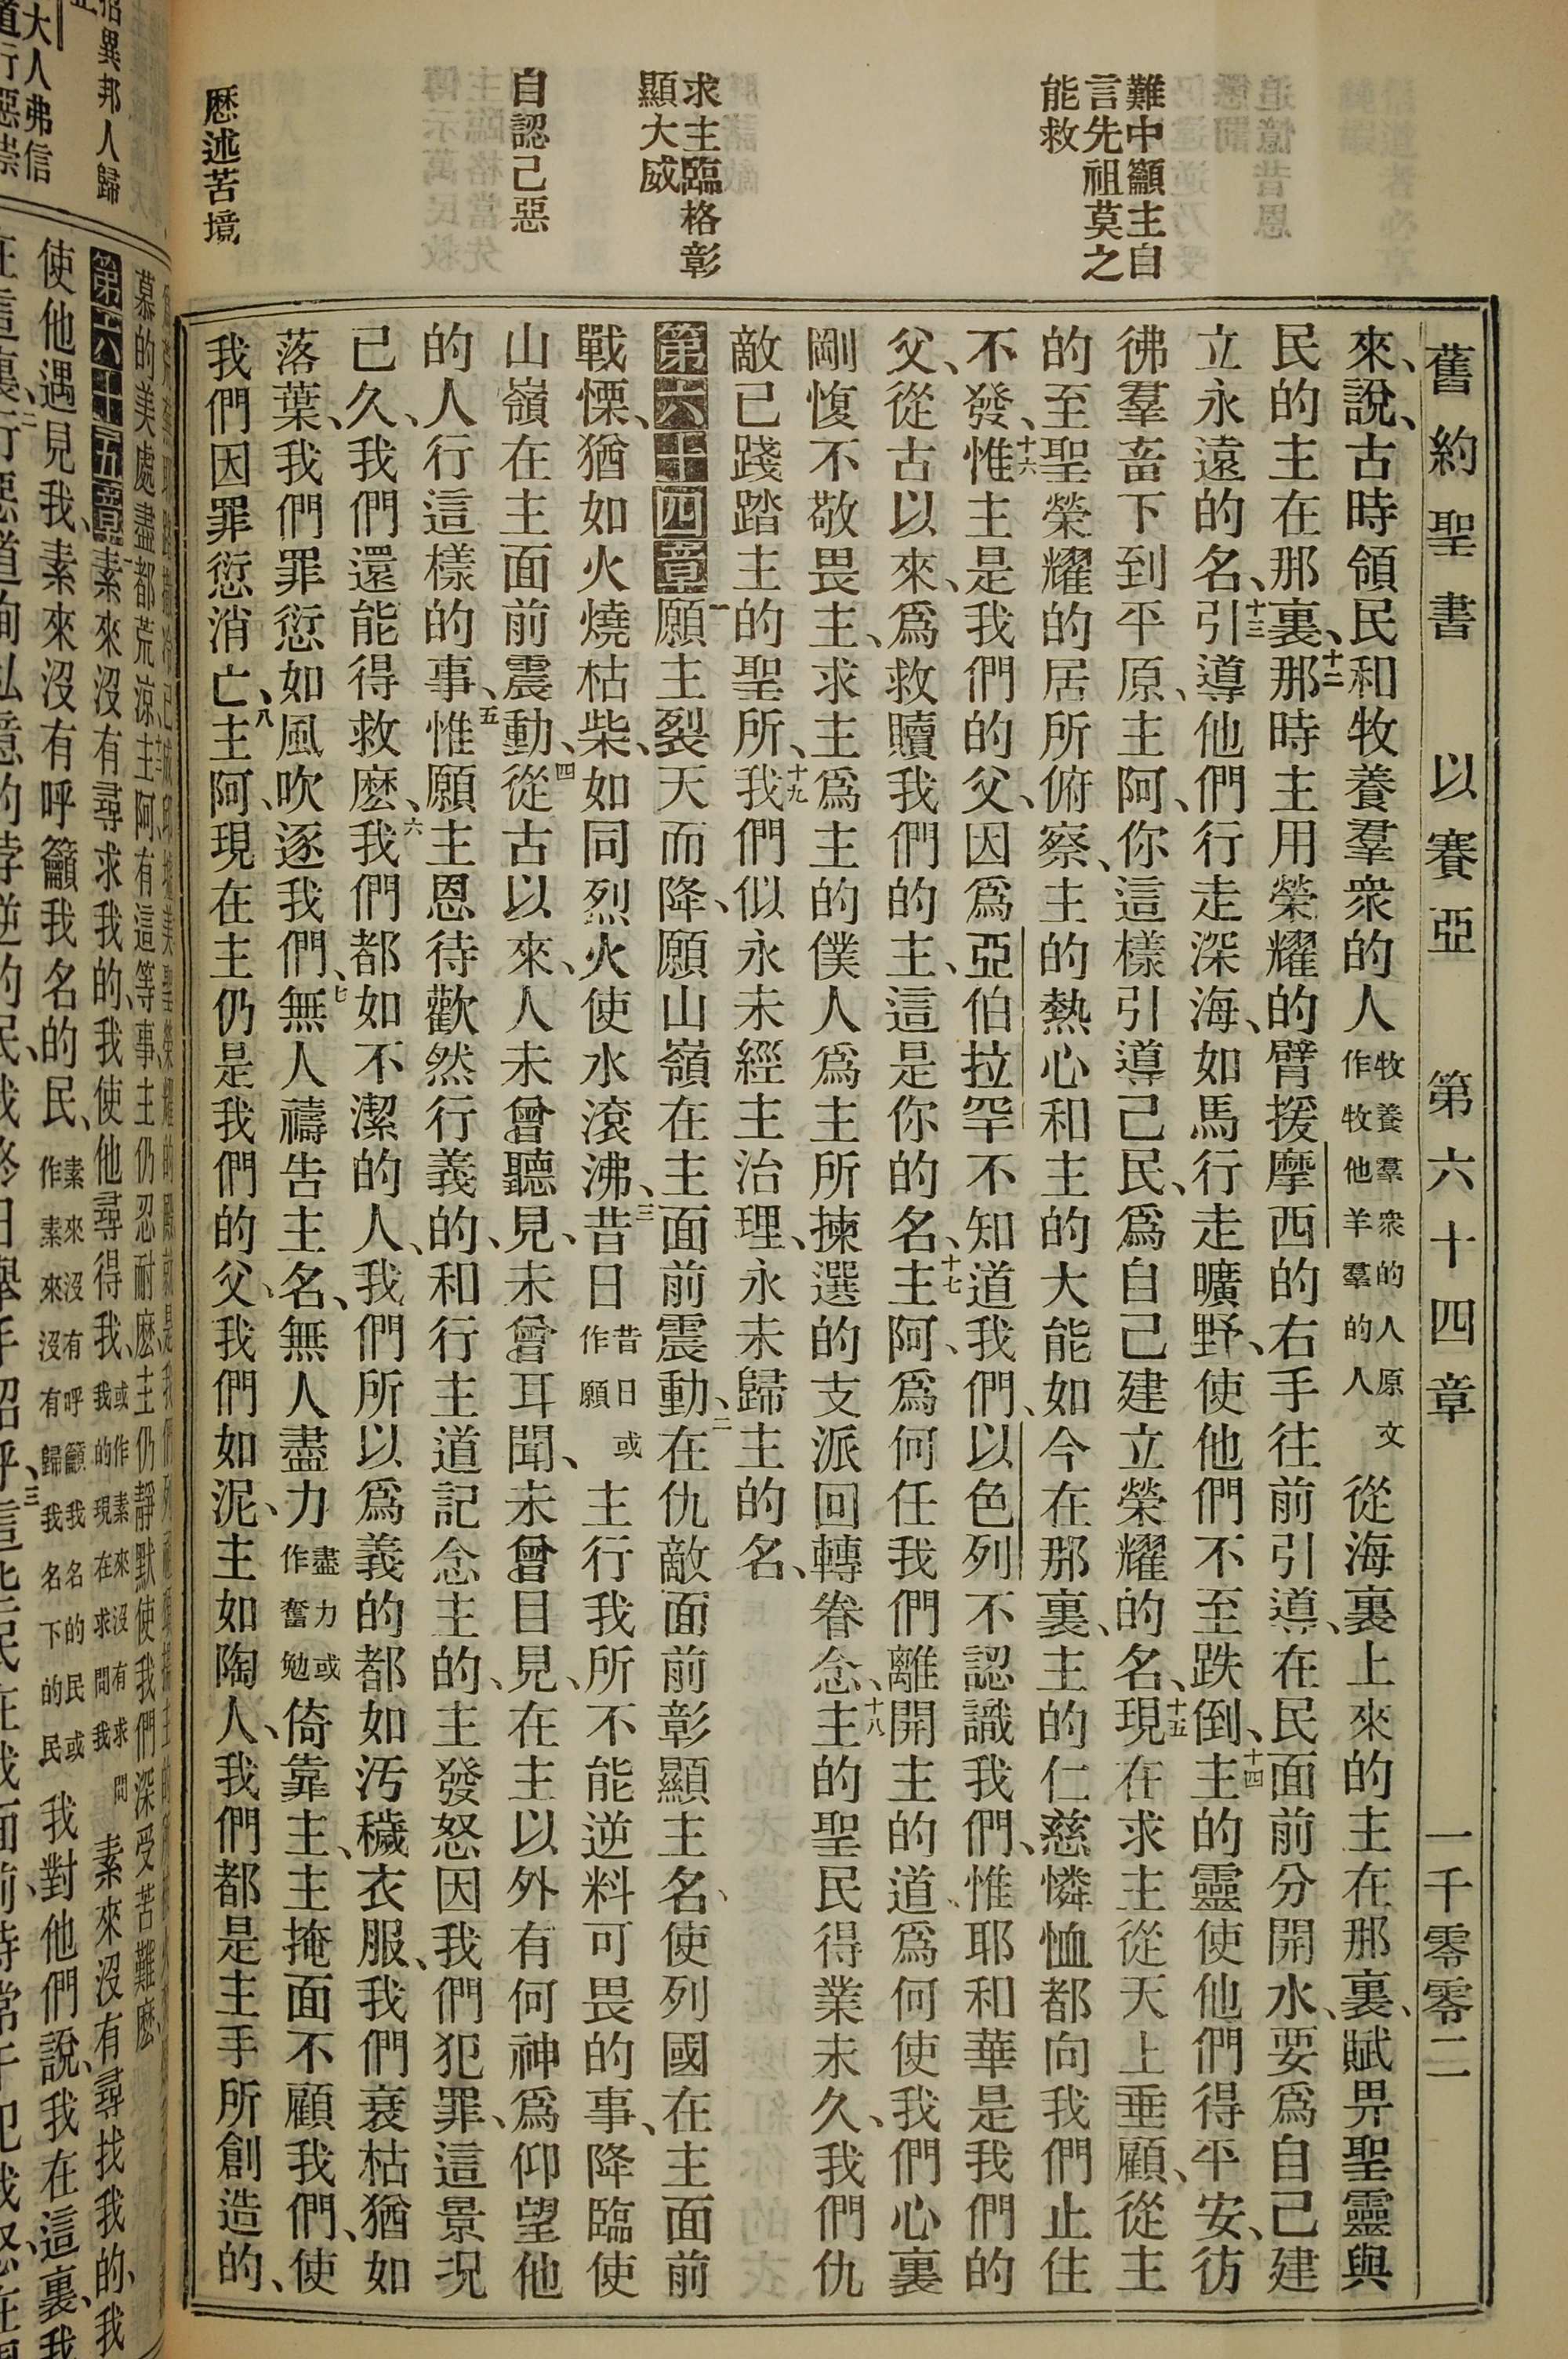 舊約聖書 以賽亞 第六十四章 一千零零二
難中籲主自
言先祖莫之
能救
求主臨格彰
顯大威
自認己惡
歷述苦境
來、說、古時領民和牧養羣衆的人牧養羣衆的人原文作牧他羊羣的人從海裏上來的主在那裏、賦畀聖靈與
民的主在那裏、十二那時主用榮耀的臂援摩西的右手往前引導、在民面前分開水、要爲自己建
立永遠的名、十三引導他們行走深海、如馬行走曠野、使他們不至跌倒、十四主的靈使他們得平安、彷
彿羣畜下到平原、主阿、你這樣引導己民、爲自己建立榮耀的名、十五現在求主從天上垂顧、從主
的至聖榮耀的居所俯察、主的熱心和主的大能如今在那裏、主的仁慈憐恤都向我們止住
不發、十六惟主是我們的父、因爲亞伯拉罕不知道我們、以色列不認識我們、惟耶和華是我們的
父、從古以來、爲救贖我們的主、這是你的名、十七主阿、爲何任我們離開主的道、爲何使我們心裏
剛愎不敬畏主、求主爲主的僕人爲主所揀選的支派回轉眷念、十八主的聖民得業未久、我們仇
敵已踐踏主的聖所、十九我們似永未經主治理、永未歸主的名、
第六十四章一願主裂天而降、願山嶺在主面前震動、二在仇敵面前彰顯主名、使列國在主面前
戰慄、猶如火燒枯柴、如同烈火使水滾沸、三昔日昔日或作願主行我所不能逆料可畏的事、降臨使
山嶺在主面前震動、四從古以來、人未曾聽見、未曾耳聞、未曾目見、在主以外有何神爲仰望他
的人行這樣的事、五惟願主恩待歡然行義的、和行主道記念主的、主發怒因我們犯罪、這景況
已久、我們還能得救麽、六我們都如不潔的人、我們所以爲義的都如汚穢衣服、我們衰枯猶如
落葉、我們罪愆如風吹逐我們、七無人禱告主名、無人盡力盡力或作奮勉倚靠主、主掩面不顧我們、使
我們因罪愆消亡、八主阿、現在主仍是我們的父、我們如泥、主如陶人、我們都是主手所創造的、
招異邦人歸
大人弗信
慕的美處盡都荒涼、十二主阿有這等事、主仍忍耐麽、主仍靜默使我們深受苦難麽、
第六十五章一素來沒有尋求我的、我使他尋得我、或作素來沒有求問我的現在求問我素來沒有尋找我的、我
使他遇見我、素來沒有呼籲我名的民、素來沒有呼籲我名的民或作素來沒有歸我名下的民我對他們說、我在這裏、我